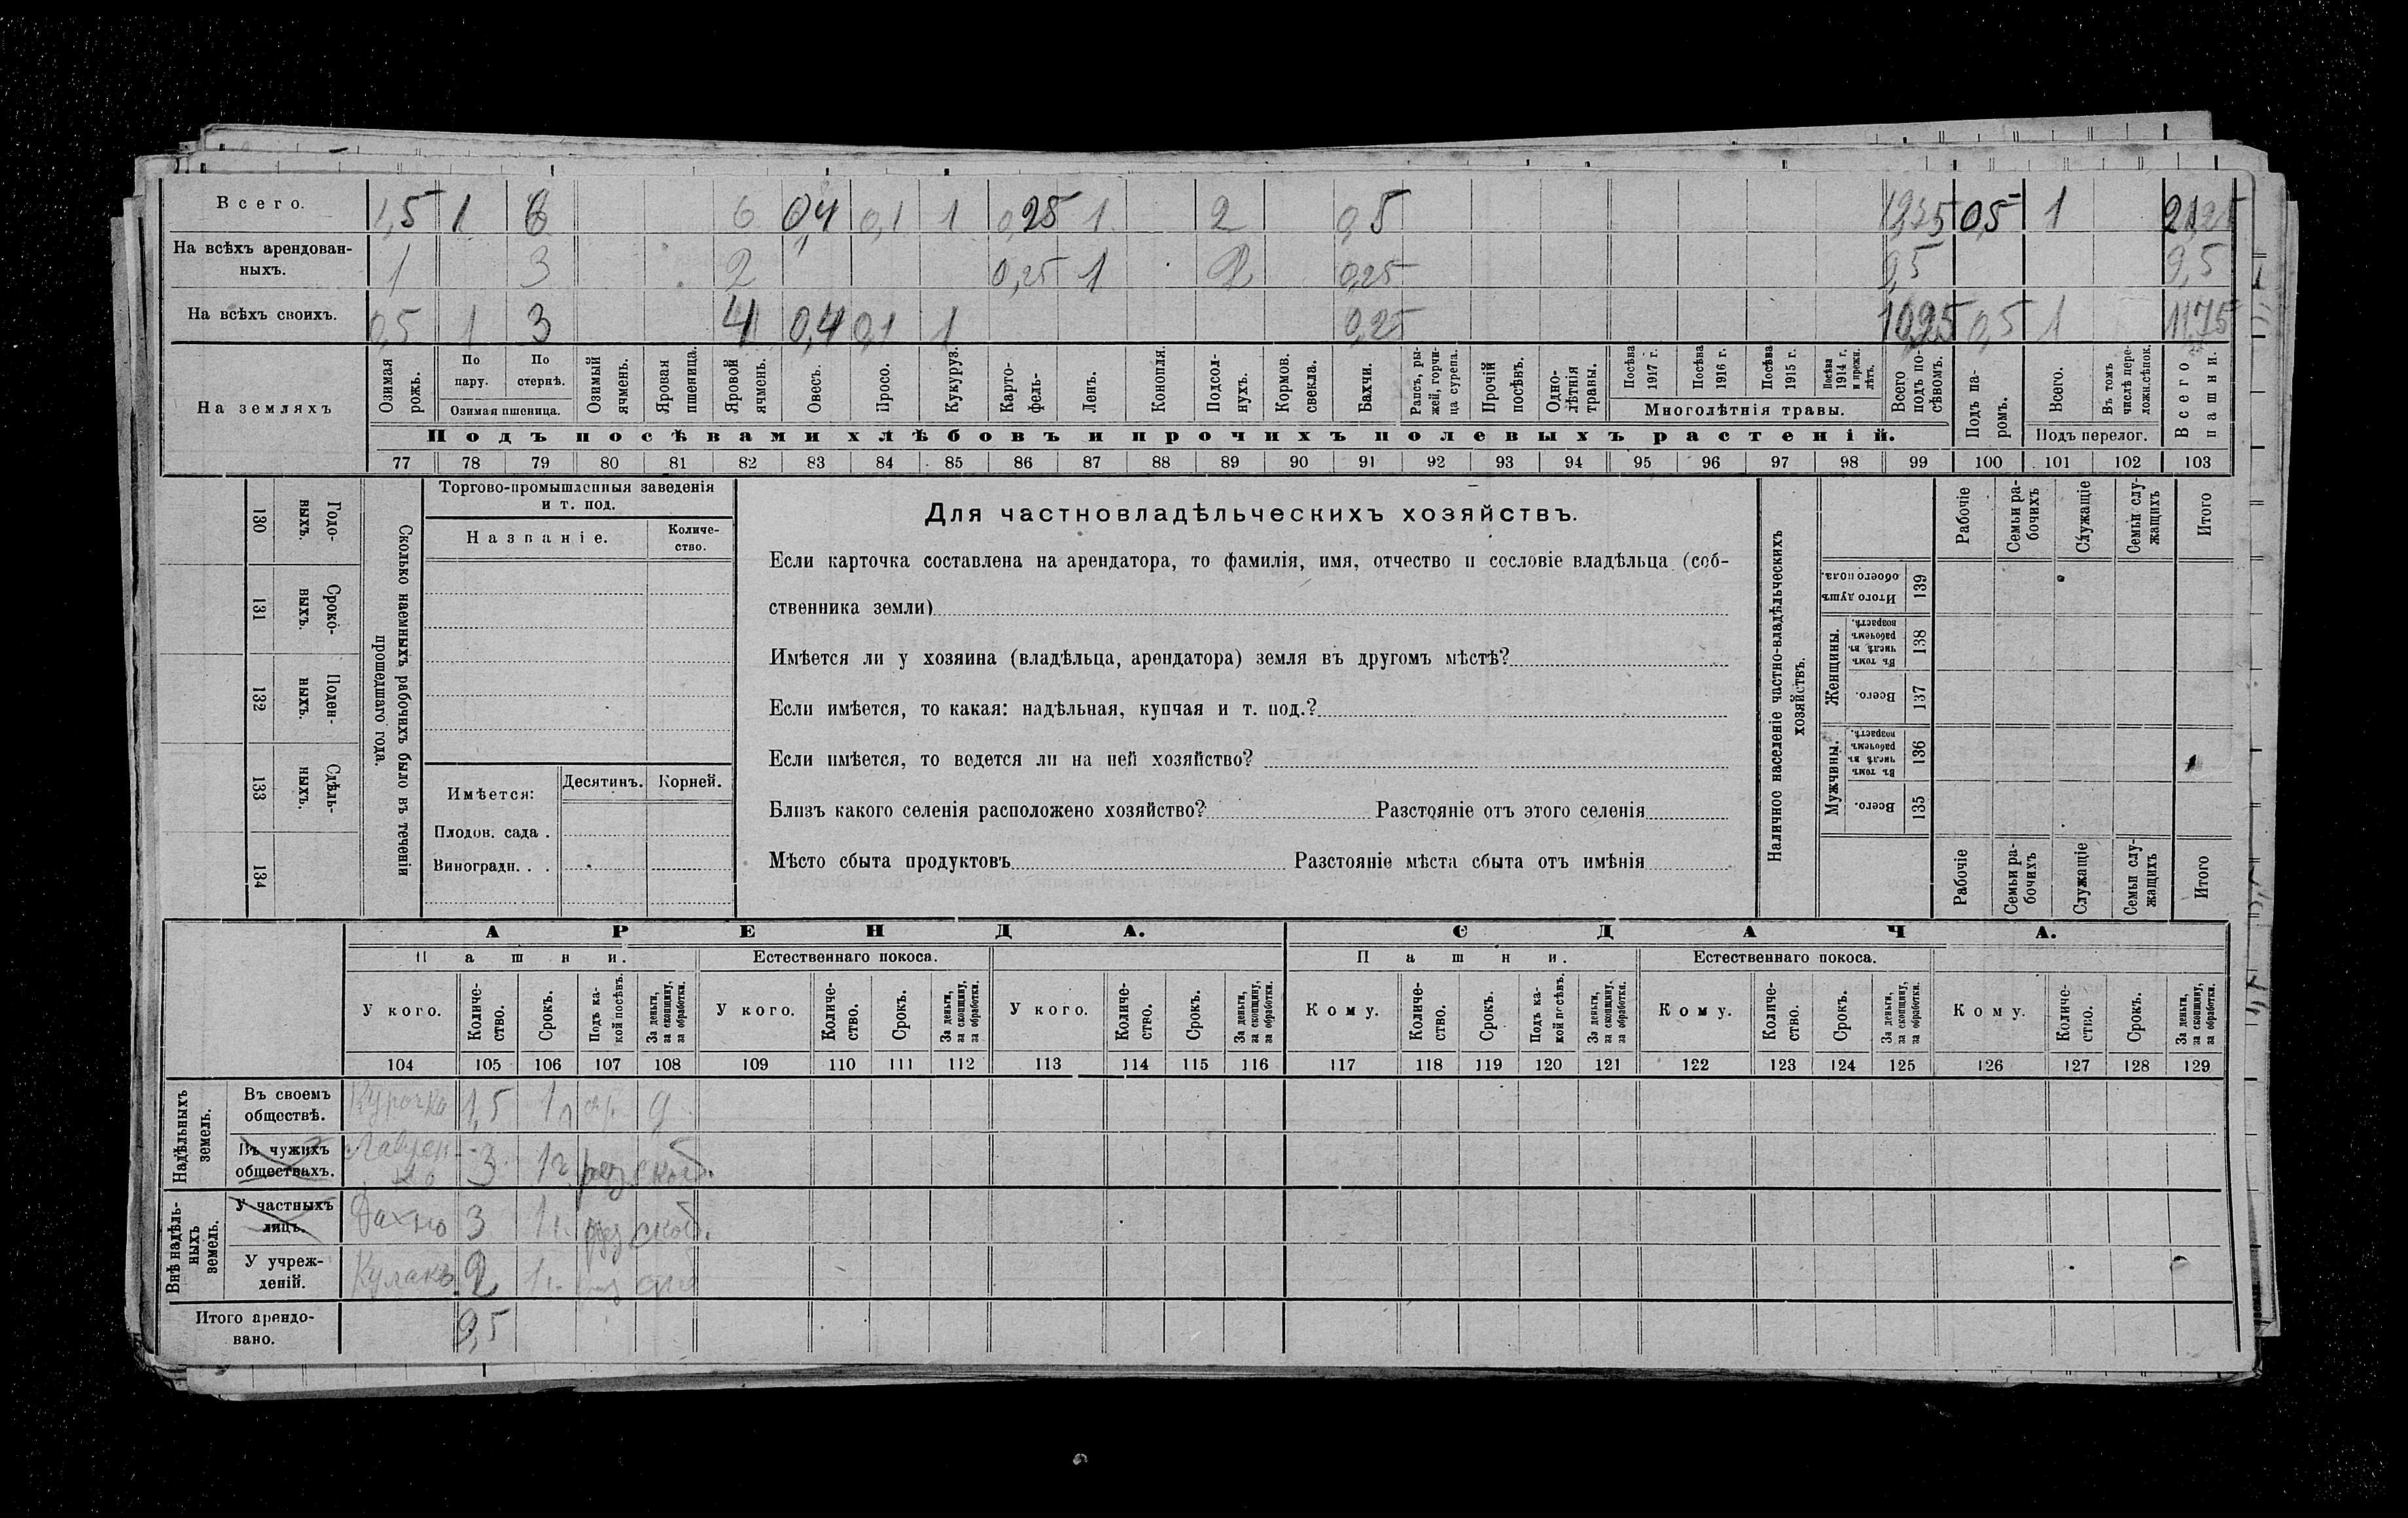 Всего. 1,5 1 6 6 0,4 0,1 1 0,25 1 2 0,5 0,5 1 21,25
На всѣхъ арендован-
ныхъ. 1 3 2 0,25 1 2 0,25 9,5 9,5
На всѣхъ своихъ. 0,5 1 3 4 0,4 0,1 1 0,25 10,25 0,5 1 11,75
На земляхъ
Озимая рожь.
По пару.
По стернѣ.
Озимая пшеница.
Озимый ячмень.
Яровая пшеница.
Яровой ячмень.
Овесъ.
Просо.
Кукуруз.
Карто-
фель-
Ленъ.
Конопля.
Подсол-
нухъ.
Кормов.
свекла.
Бахчи.
Рапсъ, ры-
жей, горчи-
ца сурепа.
Прочій
посѣвъ.
Одно-
лѣтнія
травы.
Посѣва 1917 г.
Посѣва 1916 г.
Посѣва 1915 г.
Посѣва 1914 г. и прежн. лѣтъ.
Многолѣтнія травы.
Всего подъ по-
сѣвомъ.
Подъ па-
ромъ.
Всего.
Въ томъ числѣ пере-
ложн.сѣнок.
Подъ перелог.
Всего пашни.
Подъ посѣвами хлѣбовъ и прочихъ полевыхъ растеній.
77 78 79 80 81 82 83 84 85 86 87 88 89 90 91 92 93 94 95 96 97 98 99 100 101 102 103
130 Годо-
выхъ.
131 Сроко-
выхъ.
132 Поден-
ныхъ.
133 Сдѣль-
ныхъ.
134
Сколько наемныхъ рабочихъ было въ теченіи
прошедшаго года.
Торгово-промышленныя заведенія
и т. под.
Названіе.
Количе-
ство.
Имѣется:
Десятинъ. Корней.
Плодов. сада .
Виноградн. . .
Для частновладѣльческихъ хозяйствъ.
Если карточка составлена на арендатора, то фамилія, имя, отчество и сословіе владѣльца (соб-
ственника земли)
Имѣется ли у хозяина (владѣльца, арендатора) земля въ другомъ мѣстѣ?
Если имѣется, то какая: надѣльная, купчая и т. под.?
Если имѣется, то ведется ли на ней хозяйство?
Близъ какого селенія расположено хозяйство? Разстояніе отъ этого селенія
Мѣсто сбыта продуктовъ Разстояніе мѣста сбыта отъ имѣнія
Наличное населеніе частно-владѣльческихъ
хозяйствъ.
Рабочіе
Семьи ра-
бочихъ
Служащіе
Семьи слу-
жащихъ
Итого
Итого душъ
обоего пола.
139
Женщины.
Въ томъ числѣ въ рабочемъ возрастѣ.
138
Всего.
137
Мужчины.
Въ томъ числѣ въ рабочемъ возрастѣ.
136
Всего.
135
Рабочіе
Семьи ра-
бочихъ
Служащіе
Семьи слу-
жащихъ
Итого
АРЕНДА. СДАЧА.
Пашни. Естественнаго покоса. Пашни. Естественнаго покоса.
У кого.
Количе-
ство.
Срокъ.
Подъ ка-
кой посѣвъ.
За деньги,
за скопщину,
за обработки.
У кого.
Количе-
ство.
Срокъ.
За деньги,
за скопщину,
за обработки.
У кого.
Количе-
ство.
Срокъ.
За деньги,
за скопщину,
за обработки.
Кому.
Количе-
ство.
Срокъ.
Подъ ка-
кой посѣвъ.
За деньги,
за скопщину,
за обработки.
Кому.
Количе-
ство.
Срокъ.
За деньги,
за скопщину,
за обработки.
Кому.
Количе-
ство.
Срокъ.
За деньги,
за скопщину,
за обработки.
104 105 106 107 108 109 110 111 112 113 114 115 116 117 118 119 120 121 122 123 124 125 126 127 128 129
Надѣльныхъ
земель.
Въ своемъ
обществѣ. Курочка 1,5
Въ чужихъ
обществахъ. 3 1г.
Внѣ надѣль-
ныхъ
земель.
У частныхъ
лицъ. Дахно 3 1г.
У учреж-
деній. 2 1г.
Итого арендо-
вано. 9,5